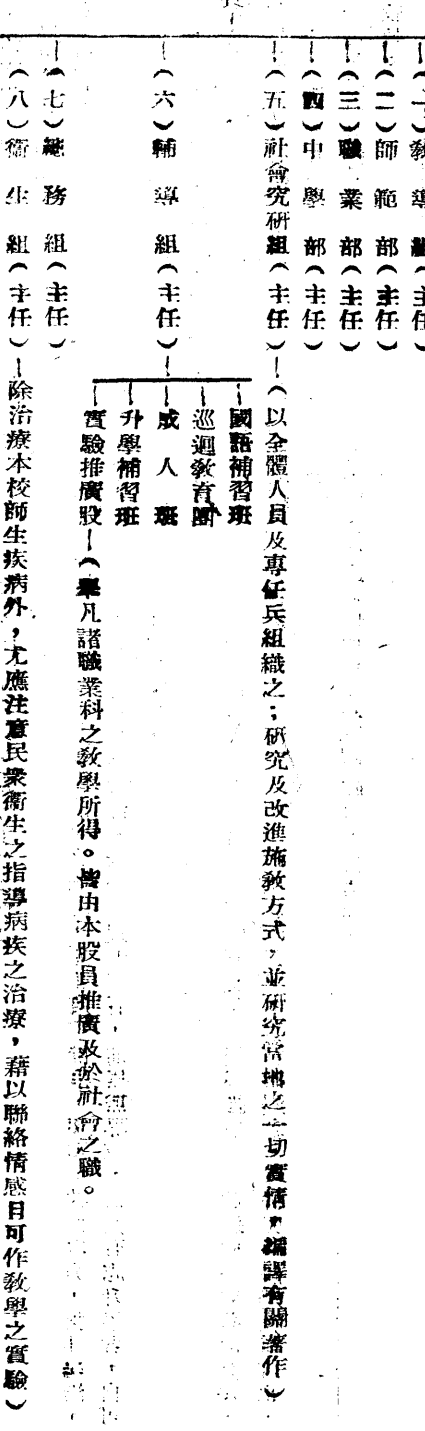 (一)教導組(主任
(二)師範部(主任)
(三)職業部(主任)
(四)中學部(主任)
(五)社會究研組(主任)—(以全體人員及專任兵組織之;研究及改進施教方式,並研究當地之一切實情,編譯有關著作)
(六)輔導組(主任)
國語補習班
巡迴教育團
成人班
升學補習班
實驗推廣股—(舉凡諸職業科之教學所得。皆由本股員推廣及於社會之職。
(七)總務組(主任)
(八)衞生組(主任)—除治療本校師生疾病外,尤應注意民衆衞生之指導病疾之治療,藉以聯絡情感且可作教學之實驗)